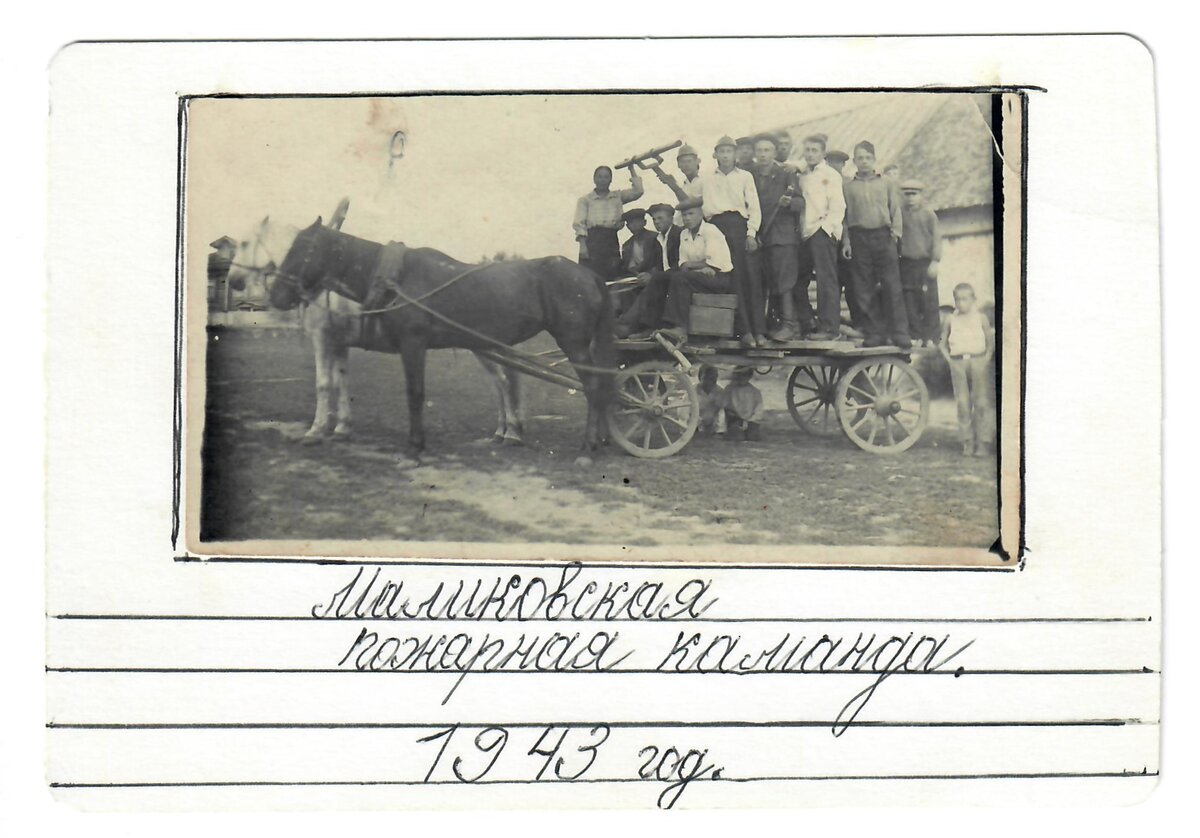 Маликовская
пожарная команда.
1943 год.